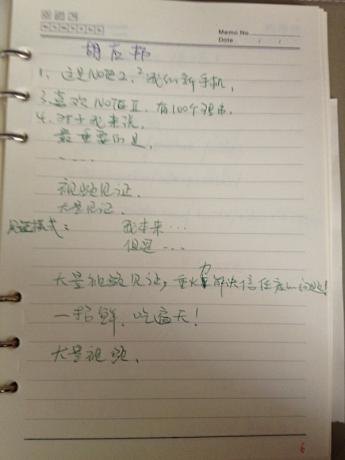 Memo No.
Date / /
胡应邦
1、这是NOTE2,2我的新手机,
3.喜欢NOTEⅡ,有100个理由.
4.对于我来说,
最重要的是,
....
视频见证.
大量见证.
见证模式:我本来...
但是...
大量视频见证,重火力解决信任度的问题!
一招鲜,吃遍天!
大量视频.
6